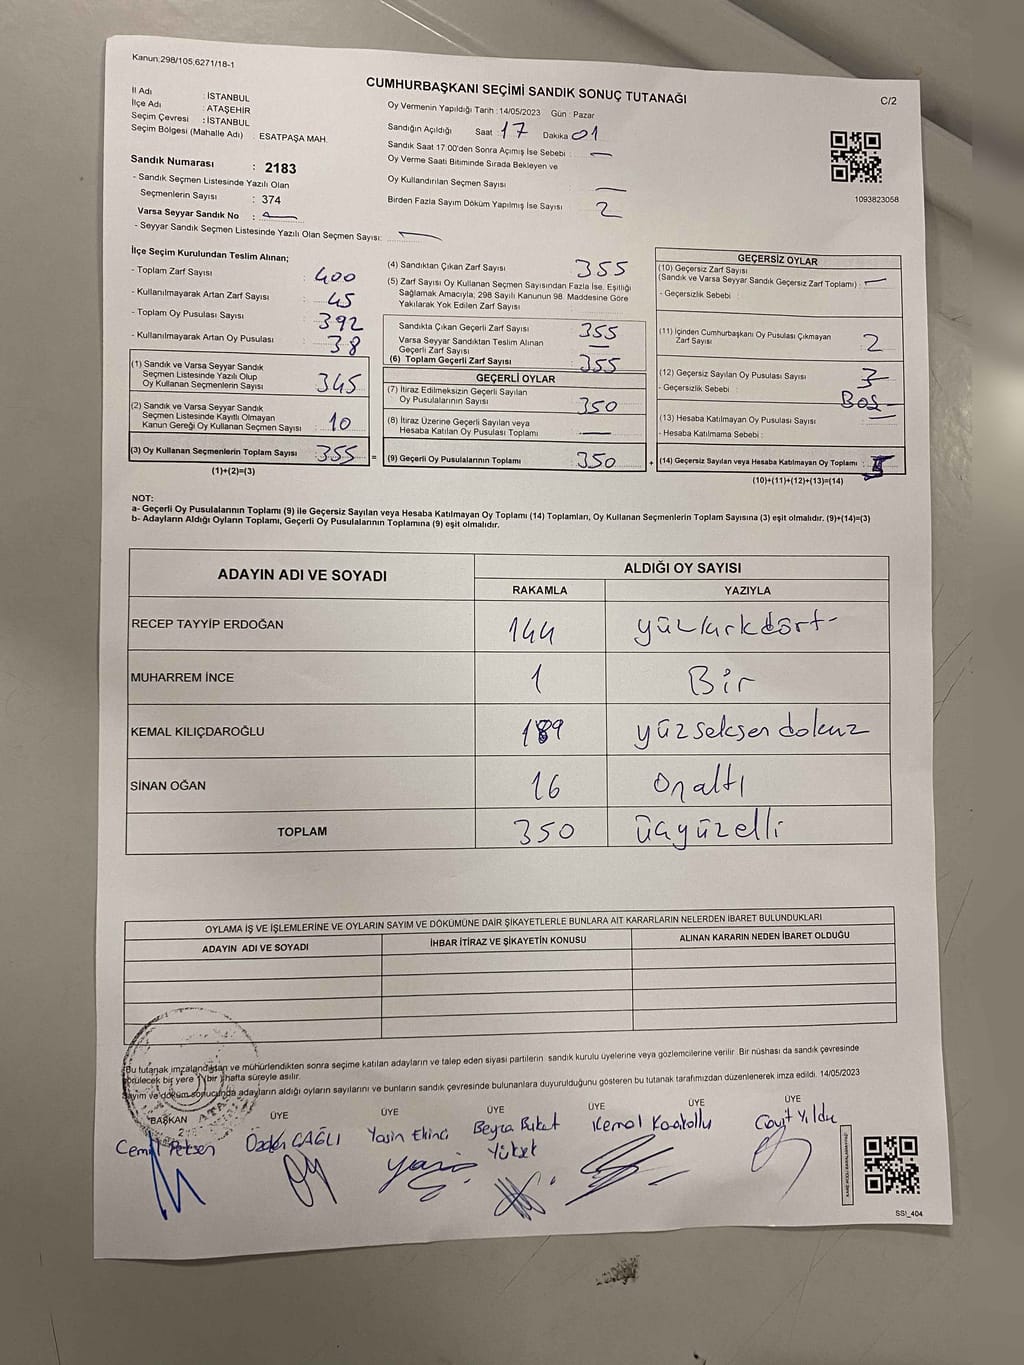 Kanun;298/105,6271/18-1
CUMHURBAŞKANI SEÇİMİ SANDIK SONUÇ TUTANAĞI
C/2
İl Adı : İSTANBUL
İlçe Adı : ATAŞEHİR
Seçim Çevresi : İSTANBUL
Seçim Bölgesi (Mahalle Adı) : ESATPAŞA MAH.
Sandık Numarası : 2183
- Sandık Seçmen Listesinde Yazılı Olan
Seçmenlerin Sayısı : 374
Varsa Seyyar Sandık No : —
- Seyyar Sandık Seçmen Listesinde Yazılı Olan Seçmen Sayısı: —
Oy Vermenin Yapıldığı Tarih : 14/05/2023 Gün : Pazar
Sandığın Açıldığı Saat : 17 Dakika 01
Sandık Saat 17:00'den Sonra Açımış İse Sebebi : —
Oy Verme Saati Bitiminde Sırada Bekleyen ve
Oy Kullandırılan Seçmen Sayısı —
Birden Fazla Sayım Döküm Yapılmış İse Sayısı 2
1093823058
İlçe Seçim Kurulundan Teslim Alınan;
- Toplam Zarf Sayısı : 400
- Kullanılmayarak Artan Zarf Sayısı : 45
- Toplam Oy Pusulası Sayısı : 392
- Kullanılmayarak Artan Oy Pusulası : 38
(1) Sandık ve Varsa Seyyar Sandık
Seçmen Listesinde Yazılı Olup
Oy Kullanan Seçmenlerin Sayısı : 345
(2) Sandık ve Varsa Seyyar Sandık
Seçmen Listesinde Kayıtlı Olmayan
Kanun Gereği Oy Kullanan Seçmen Sayısı : 10
(3) Oy Kullanan Seçmenlerin Toplam Sayısı : 355 =
(1)+(2)=(3)
(4) Sandıktan Çıkan Zarf Sayısı 355
(5) Zarf Sayısı Oy Kullanan Seçmen Sayısından Fazla İse, Eşitliği
Sağlamak Amacıyla; 298 Sayılı Kanunun 98. Maddesine Göre
Yakılarak Yok Edilen Zarf Sayısı :
Sandıkta Çıkan Geçerli Zarf Sayısı : 355
Varsa Seyyar Sandıktan Teslim Alınan
Geçerli Zarf Sayısı : —
(6) Toplam Geçerli Zarf Sayısı : 355
GEÇERLİ OYLAR
(7) İtiraz Edilmeksizin Geçerli Sayılan
Oy Pusulalarının Sayısı : 350
(8) İtiraz Üzerine Geçerli Sayılan veya
Hesaba Katılan Oy Pusulası Toplamı : —
(9) Geçerli Oy Pusulalarının Toplamı : 350 +
GEÇERSİZ OYLAR
(10) Geçersiz Zarf Sayısı
(Sandık ve Varsa Seyyar Sandık Geçersiz Zarf Toplamı) : —
- Geçersizlik Sebebi :
(11) İçinden Cumhurbaşkanı Oy Pusulası Çıkmayan
Zarf Sayısı : 2
(12) Geçersiz Sayılan Oy Pusulası Sayısı : 3
- Geçersizlik Sebebi : Boş
(13) Hesaba Katılmayan Oy Pusulası Sayısı : —
- Hesaba Katılmama Sebebi :
(14) Geçersiz Sayılan veya Hesaba Katılmayan Oy Toplamı : 5
(10)+(11)+(12)+(13)=(14)
NOT:
a- Geçerli Oy Pusulalarının Toplamı (9) ile Geçersiz Sayılan veya Hesaba Katılmayan Oy Toplamı (14) Toplamları, Oy Kullanan Seçmenlerin Toplam Sayısına (3) eşit olmalıdır. (9)+(14)=(3)
b- Adayların Aldığı Oyların Toplamı, Geçerli Oy Pusulalarının Toplamına (9) eşit olmalıdır.
ADAYIN ADI VE SOYADI
ALDIĞI OY SAYISI
RAKAMLA YAZIYLA
RECEP TAYYİP ERDOĞAN 144 yüzkırkdört
MUHARREM İNCE 1 Bir
KEMAL KILIÇDAROĞLU 189 yüzseksendokuz
SİNAN OĞAN 16 onaltı
TOPLAM 350 üçyüzelli
OYLAMA İŞ VE İŞLEMLERİNE VE OYLARIN SAYIM VE DÖKÜMÜNE DAİR ŞİKAYETLERLE BUNLARA AİT KARARLARIN NELERDEN İBARET BULUNDUKLARI
ADAYIN ADI VE SOYADI İHBAR İTİRAZ VE ŞİKAYETİN KONUSU ALINAN KARARIN NEDEN İBARET OLDUĞU
Bu tutanak imzalandıktan ve mühürlendikten sonra seçime katılan adayların ve talep eden siyasi partilerin sandık kurulu üyelerine veya gözlemcilerine verilir. Bir nüshası da sandık çevresinde
görülecek bir yere 1 (bir) hafta süreyle asılır.
Sayım ve döküm sonucunda adayların aldığı oyların sayılarını ve bunların sandık çevresinde bulunanlara duyurulduğunu gösteren bu tutanak tarafımızdan düzenlenerek imza edildi. 14/05/2023
BAŞKAN ÜYE ÜYE ÜYE ÜYE ÜYE ÜYE
Özden ÇAĞLI Yasin Ekinci Beyza Buket Kemal
Yüksel
SSI_404